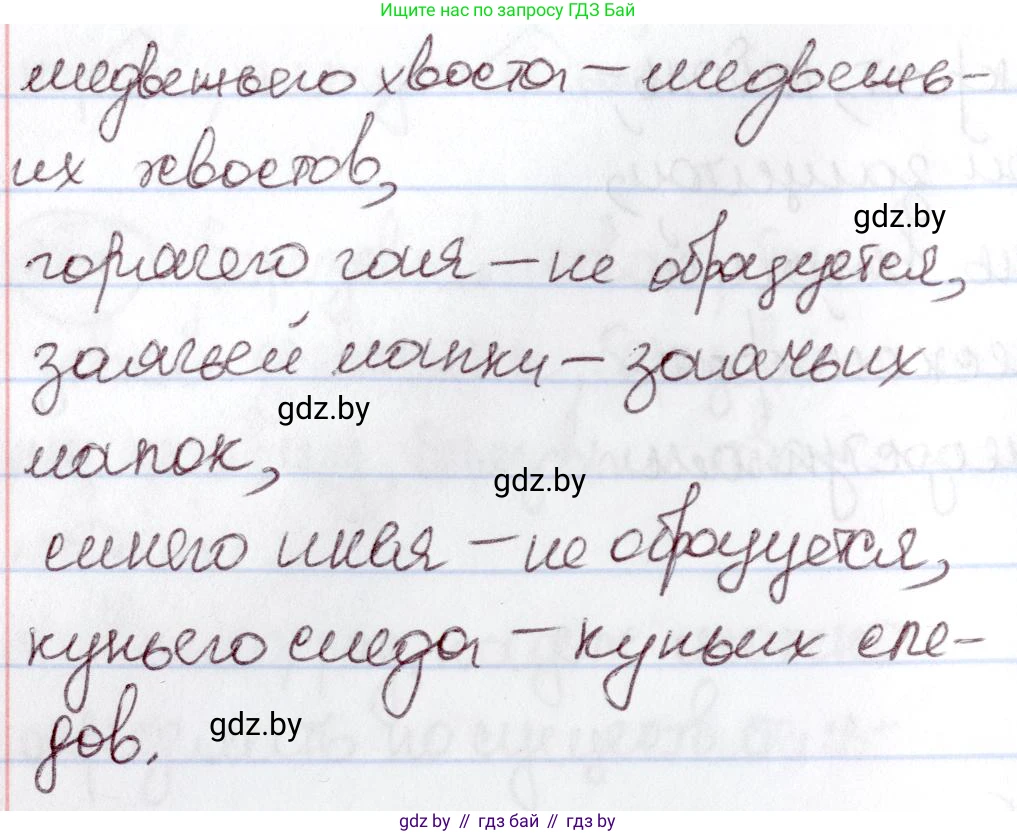 Ищите нас по запросу ГДЗ Бай
медвежьего хвоста – медвежь-
их хвостов,
gdz.by
горячего чая – не образуется,
заячьей лапки – заячьих
gdz.by
лапок,
gdz.by
синего инея – не образуется,
куньего следа – куньих сле-
gdz.by
дов.
gdz.by // гдз бай // gdz.by